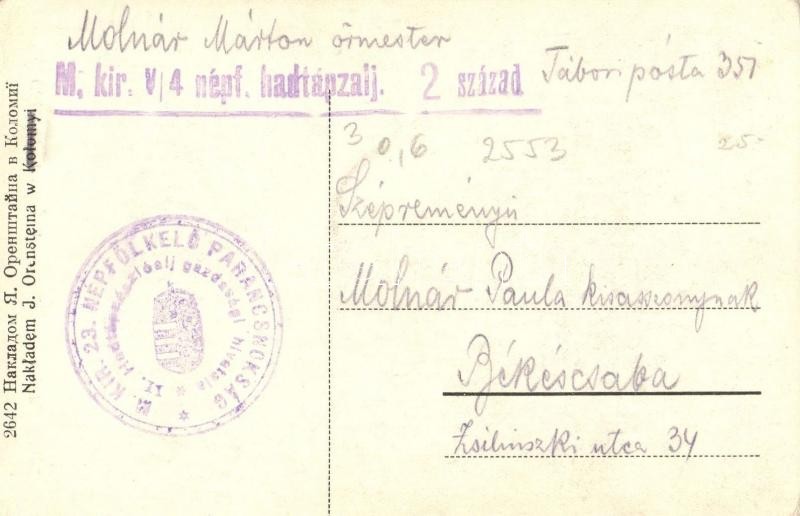 Molnár Márton őrmester
M. kir. V/4 népf. hadtápzalj. 2 század
Tábori pósta 351
30,6 2553 25-
Szépreményü
Molnár Paula kisasszonynak
Békéscsaba
Zsilinszki utca 34
M. KIR. 23. NÉPFÖLKELŐ PARANCSNOKSÁG
gazdasági hivatala
2642 Накладом Я. Оренштайна в Коломиї
Nakładem J. Orensteina w Kołomyi